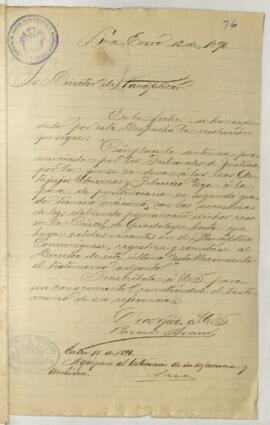 76
Lima, Enero 12 de 1891.
Sr Director del Panóptico
En la fecha se ha expe-
dido por este Despacho la resolución
que sigue:
Cúmplase la sentencia pro-
nunciada por los Tribunales de Justicia
por la que se condena a los reos
y Vega á la
pena de penitenciaria segundo grado
termino maximo, con las accesorias
de ley; debiendo permanecer dichos reos
en la Cárcel de Guadalupe, hasta que
haya celdas vacantes en el Panóptico
Comuniquese, registrese y remitase al
Director de este último establecimiento
el testimonio adjunto.
Trascríbola á US para
su conocimiento remitiendole el testi-
monio de su referencia.
Dios gue á US
Enero 15 de 1891.
Agreguese al testimonio de su referencia y
archivese.